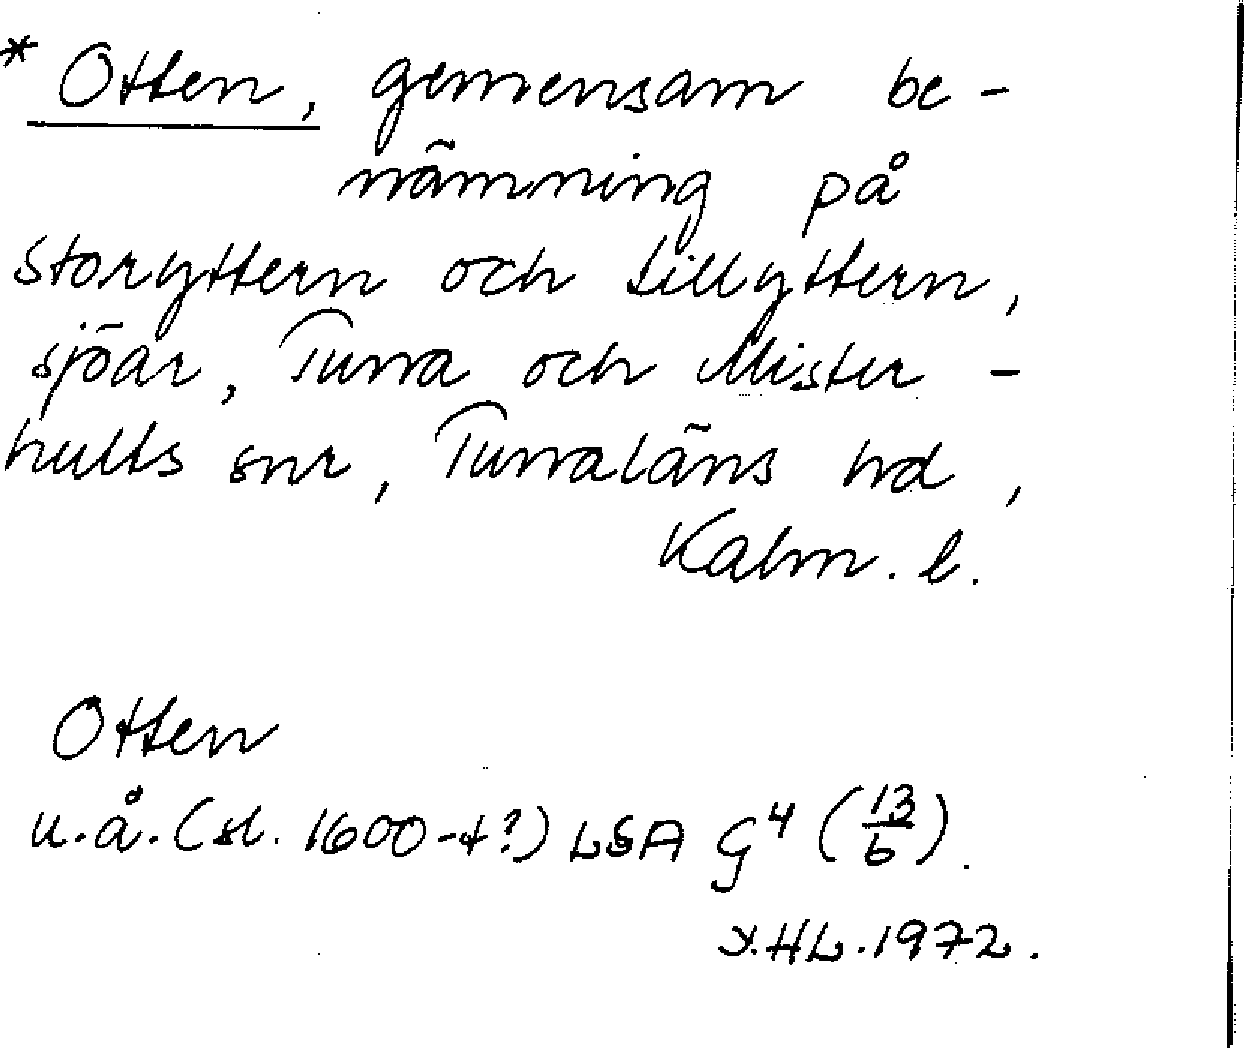 * Otten, gemensam be-
nämning på
Storyttern och Lillyttern,
sjöar, Tuna och Mister-
hults snr, Tunaläns hd,
Kalm. l.
Otten
u.å. (sl. 1600-t?) LSA G4 (13/6).
HL. 1972.